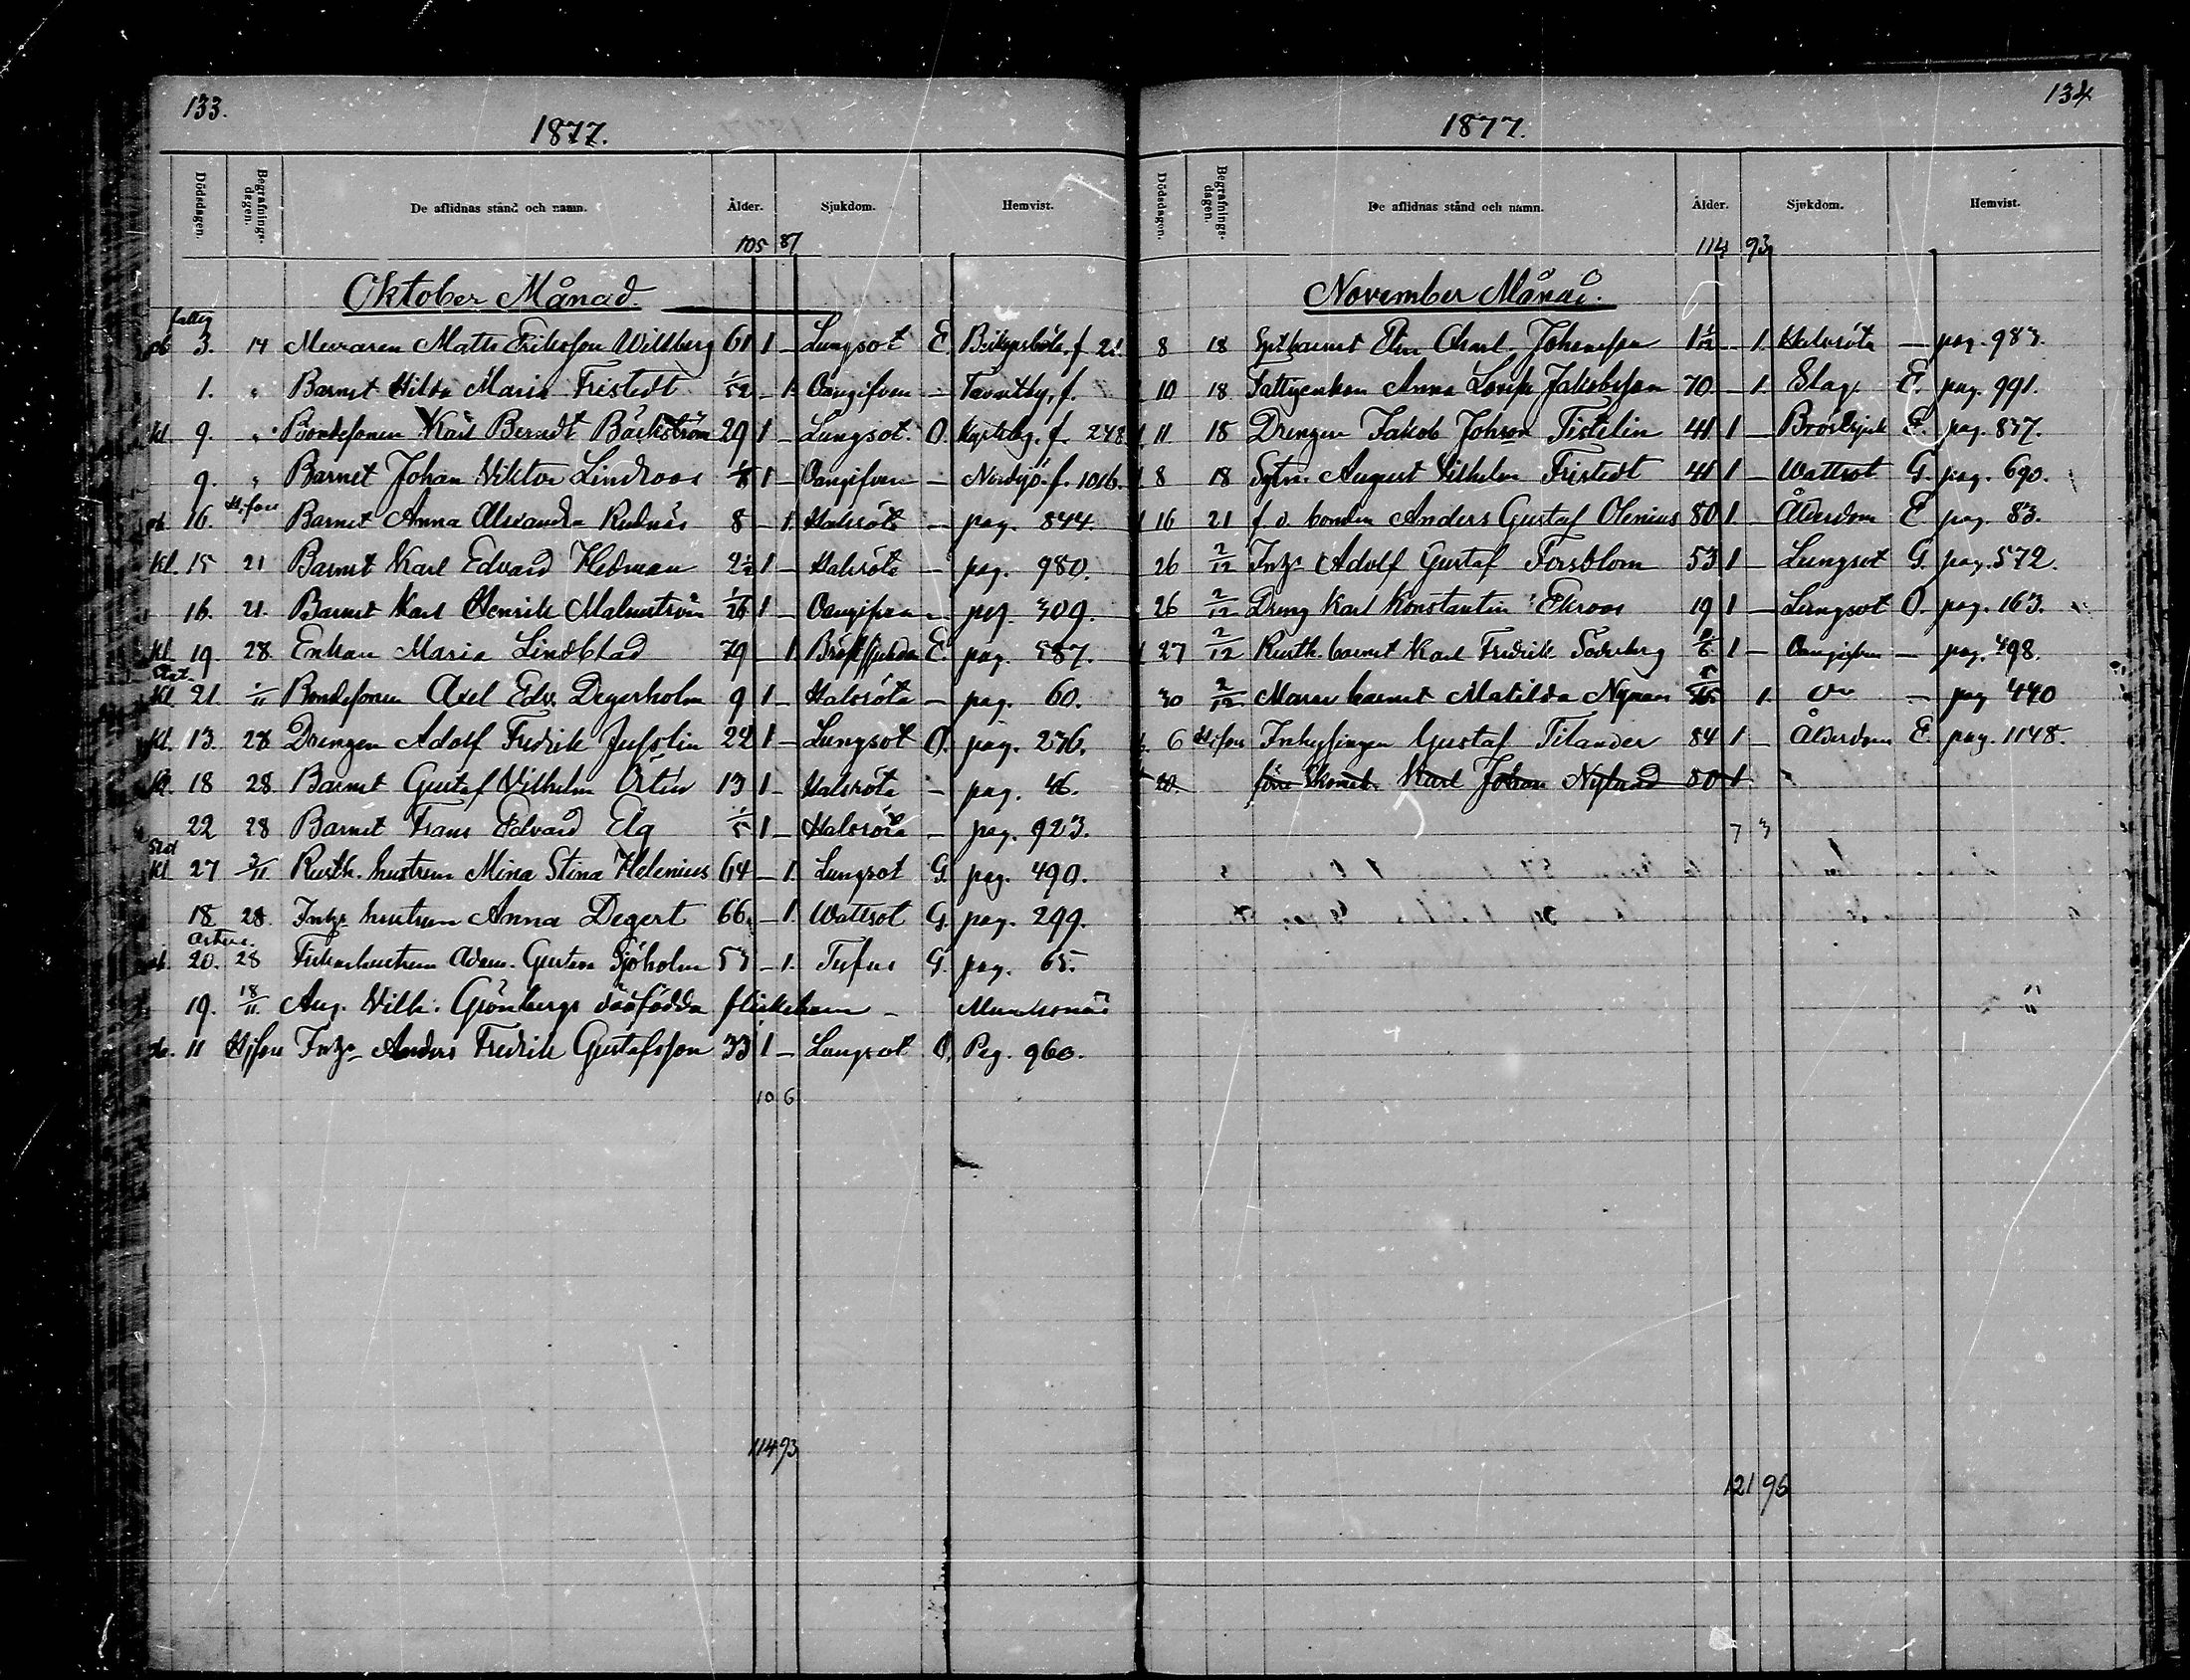 133.
1877.
Dödsdagen. Begrafnings-dagen. De aflidnas stånd och namn. Ålder. Sjukdom. Hemvist.
105 87
Oktober Månad.
3. 14 Muraren Matts Eriksson Willberg 61 1 – Lungsot E. f 21.
1. " Barnet Hilda Maria Fristedt 1/52 – 1. Oangifven – f.
Kl. 9. " Bondesonen Karl Berndt Bäckström 29 1 – Lungsot. O. f. 248
9. " Barnet Johan Viktor Lindroos 1 – Oangifven – Nordsjö. f. 1016.
16. H:fors Barnet Anna Alexandra Rudnäs 8 – 1. Halsröta – pag. 844.
Kl. 15 21 Barnet Karl Edvard Hedman 2 1/2 1 – Halsröta – pag. 980.
16. 21. Barnet Karl Henrik Malmström 1 – Oangifven – pag. 309.
Kl. 19. 28. Enkan Maria Lindblad 79 – 1. Bröstsjukdom E. pag. 587.
Kl. 21. 1/11 Bondesonen Axel Edv. Degerholm 9 1 – Halsröta – pag. 60.
Kl. 13. 28 Drengen Adolf Fredrik Juslin 22 1 – Lungsot O. pag. 236.
Kl. 18 28. Barnet Gustaf Vilhelm Örtén 13 1 – Halsröta – pag. 46.
22 28 Barnet Frans Edvard Elg 1/5 1 – Halsröta – pag. 923.
Kl. 27 3/11 Rusth. hustrun Mina Stina Helenius 64 – 1. Lungsot G. pag. 490.
18 28. Inhys hustrun Anna Degert 66. – 1. Wattsot G. pag. 299.
20. 28 Gustava Sjöholm 53 – 1. Tyfus G. pag. 65.
19. 18/11 Aug. Vilh. Grönbergs dödfödda flickebarn – Munksnäs
11 H:fors Inhys Anders Fredrik Gustafsson 33 1 – Lungsot O. Pag. 960.
10 6
114 93
134
1877.
Dödsdagen. Begrafnings-dagen. De aflidnas stånd och namn. Ålder. Sjukdom. Hemvist.
114 93
November Månad.
8 18 Johansson 1 1/12 – 1. Halsröta – pag. 983.
10 18 Fattigenkan Anna Lovisa Jakobsson 70 – 1. Slag E. pag. 991.
11 18 Drengen Jakob Johsson Tistelin 41 1 – Bröstsjuk E. pag. 837.
8 18 Sytn. August Vilhelm Fristedt 41 1 – Wattsot G. pag. 690.
16 21 f. d. bonden Anders Gustaf Olenius 80 1 – Ålderdom E. pag. 83.
26 2/12 Inhys Adolf Gustaf Forsblom 53 1 – Lungsot G. pag. 572.
26 2/12 Dreng Karl Konstantin Ekroos 19 1 – Lungsot O. pag. 163.
27 2/12 Rusth. barnet Karl Fredrik Söderberg 1 – Oangifven – pag. 498.
30 2/12 barnet Matilda Nyman 1. – pag 440
6 H:fors Inhysingen Gustaf Tilander 84 1 – Ålderdom E. pag. 1148.
20. Karl Johan Nylund 50 1
7 3
121 96